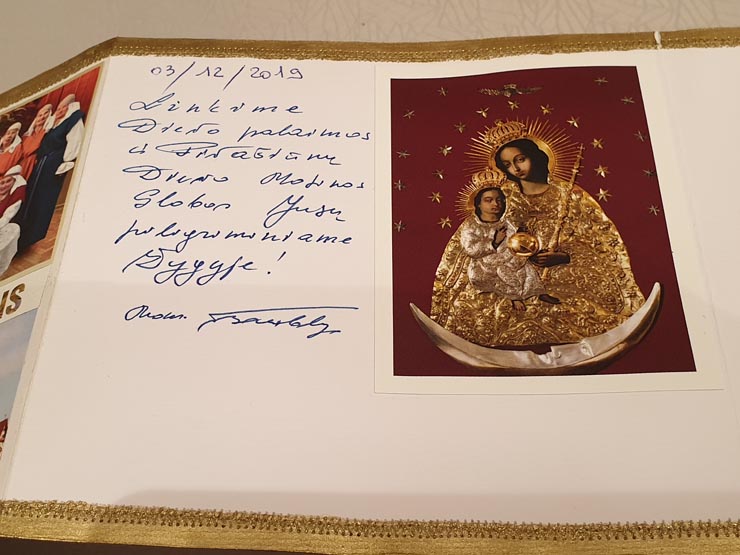 03/12/2019
Linkime
Dievo palaimos
ir Pivašiūnų
Dievo Motinos
Globos Jūsų
piligriminiame
Žygyje!
IS